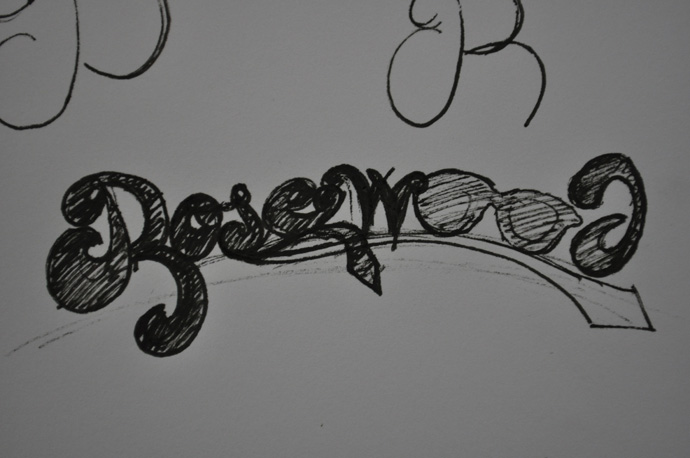 R
Rosewood